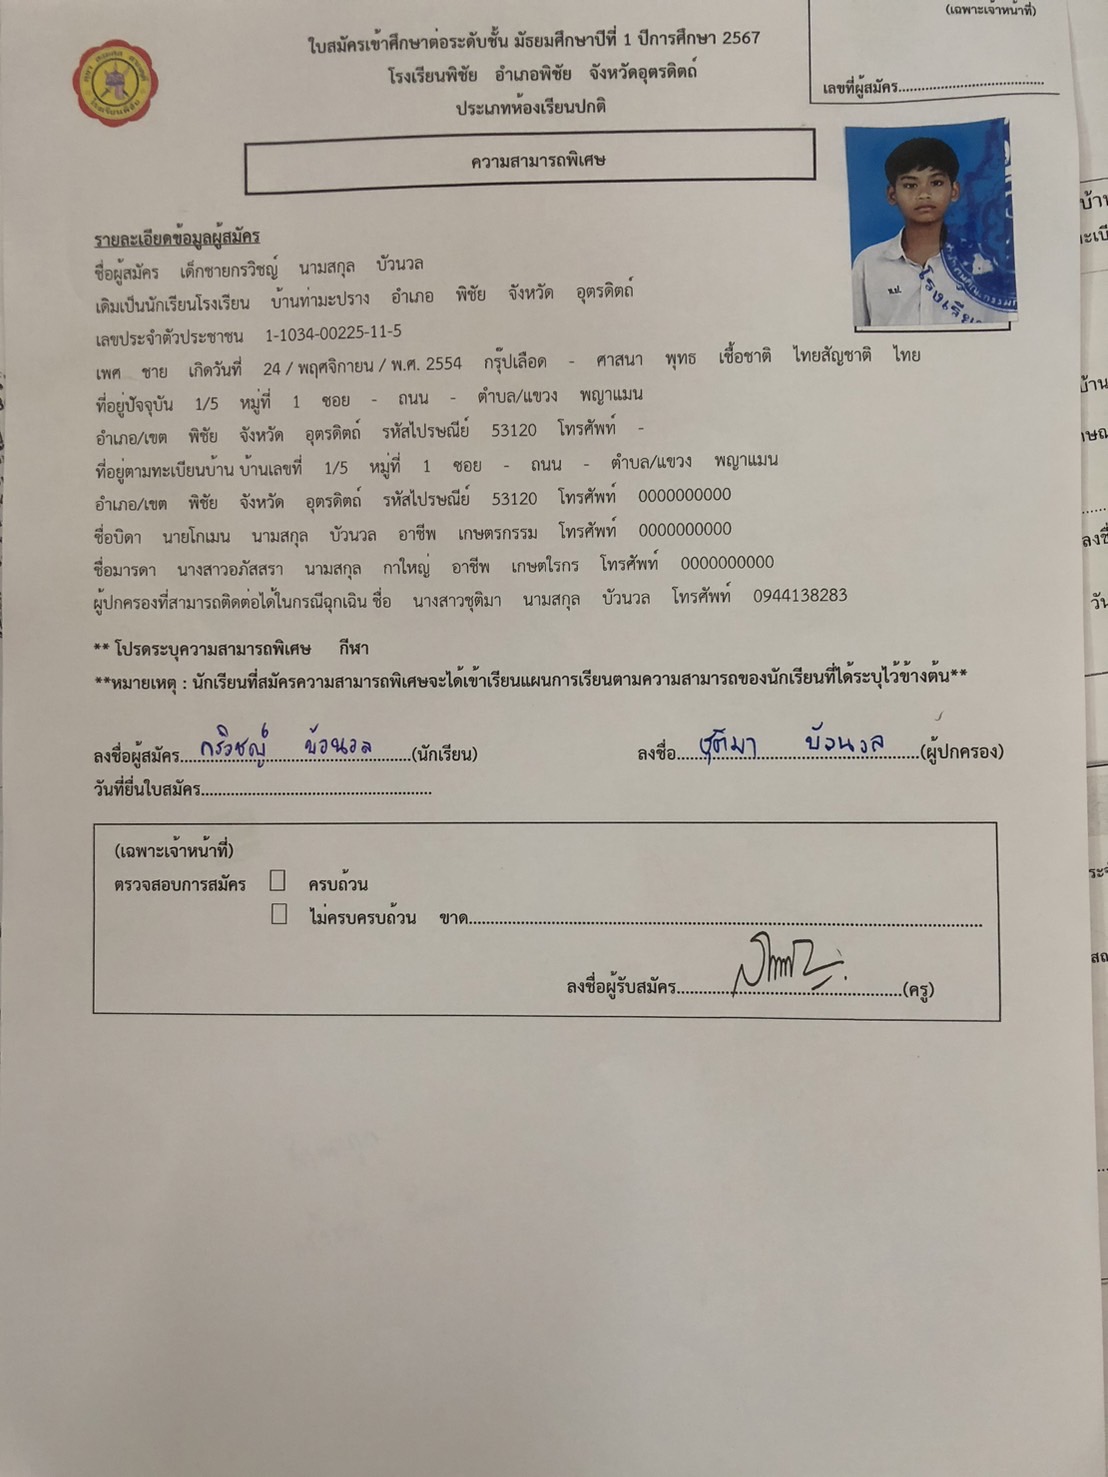 (เฉพาะเจ้าหน้าที่)
เลขที่ผู้สมัคร
ใบสมัครเข้าศึกษาต่อระดับชั้น มัธยมศึกษาปีที่ 1 ปีการศึกษา 2567
โรงเรียนพิชัย อำเภอพิชัย จังหวัดอุตรดิตถ์
ประเภทห้องเรียนปกติ
ความสามารถพิเศษ
รายละเอียดข้อมูลผู้สมัคร
ชื่อผู้สมัคร เด็กชายกรวิชญ์ นามสกุล บัวนวล
เดิมเป็นนักเรียนโรงเรียน บ้านท่ามะปราง อำเภอ พิชัย จังหวัด อุตรดิตถ์
เลขประจำตัวประชาชน 1-1034-00225-11-5
เพศ ชาย เกิดวันที่ 24 / พฤศจิกายน / พ.ศ. 2554 กรุ๊ปเลือด - ศาสนา พุทธ เชื้อชาติ ไทยสัญชาติ ไทย
ที่อยู่ปัจจุบัน 1/5 หมู่ที่ 1 ซอย - ถนน - ตำบล/แขวง พญาแมน
อำเภอ/เขต พิชัย จังหวัด อุตรดิตถ์ รหัสไปรษณีย์ 53120 โทรศัพท์ -
ที่อยู่ตามทะเบียนบ้าน บ้านเลขที่ 1/5 หมู่ที่ 1 ซอย - ถนน - ตำบล/แขวง พญาแมน
อำเภอ/เขต พิชัย จังหวัด อุตรดิตถ์ รหัสไปรษณีย์ 53120 โทรศัพท์ 0000000000
ชื่อบิดา นายโกเมน นามสกุล บัวนวล อาชีพ เกษตรกรรม โทรศัพท์ 0000000000
ชื่อมารดา นางสาวอภัสสรา นามสกุล กาใหญ่ อาชีพ เกษตไรกร โทรศัพท์ 0000000000
ผู้ปกครองที่สามารถติดต่อได้ในกรณีฉุกเฉิน ชื่อ นางสาวชุติมา นามสกุล บัวนวล โทรศัพท์ 0944138283
** โปรดระบุความสามารถพิเศษ กีฬา
**หมายเหตุ : นักเรียนที่สมัครความสามารถพิเศษจะได้เข้าเรียนแผนการเรียนตามความสามารถของนักเรียนที่ได้ระบุไว้ข้างต้น**
ลงชื่อผู้สมัคร กรวิชญ์ บัวนวล (นักเรียน) ลงชื่อ ชุติมา บัวนวล (ผู้ปกครอง)
วันที่ยื่นใบสมัคร
(เฉพาะเจ้าหน้าที่)
ตรวจสอบการสมัคร ครบถ้วน
ไม่ครบครบถ้วน ขาด
ลงชื่อผู้รับสมัคร (ครู)